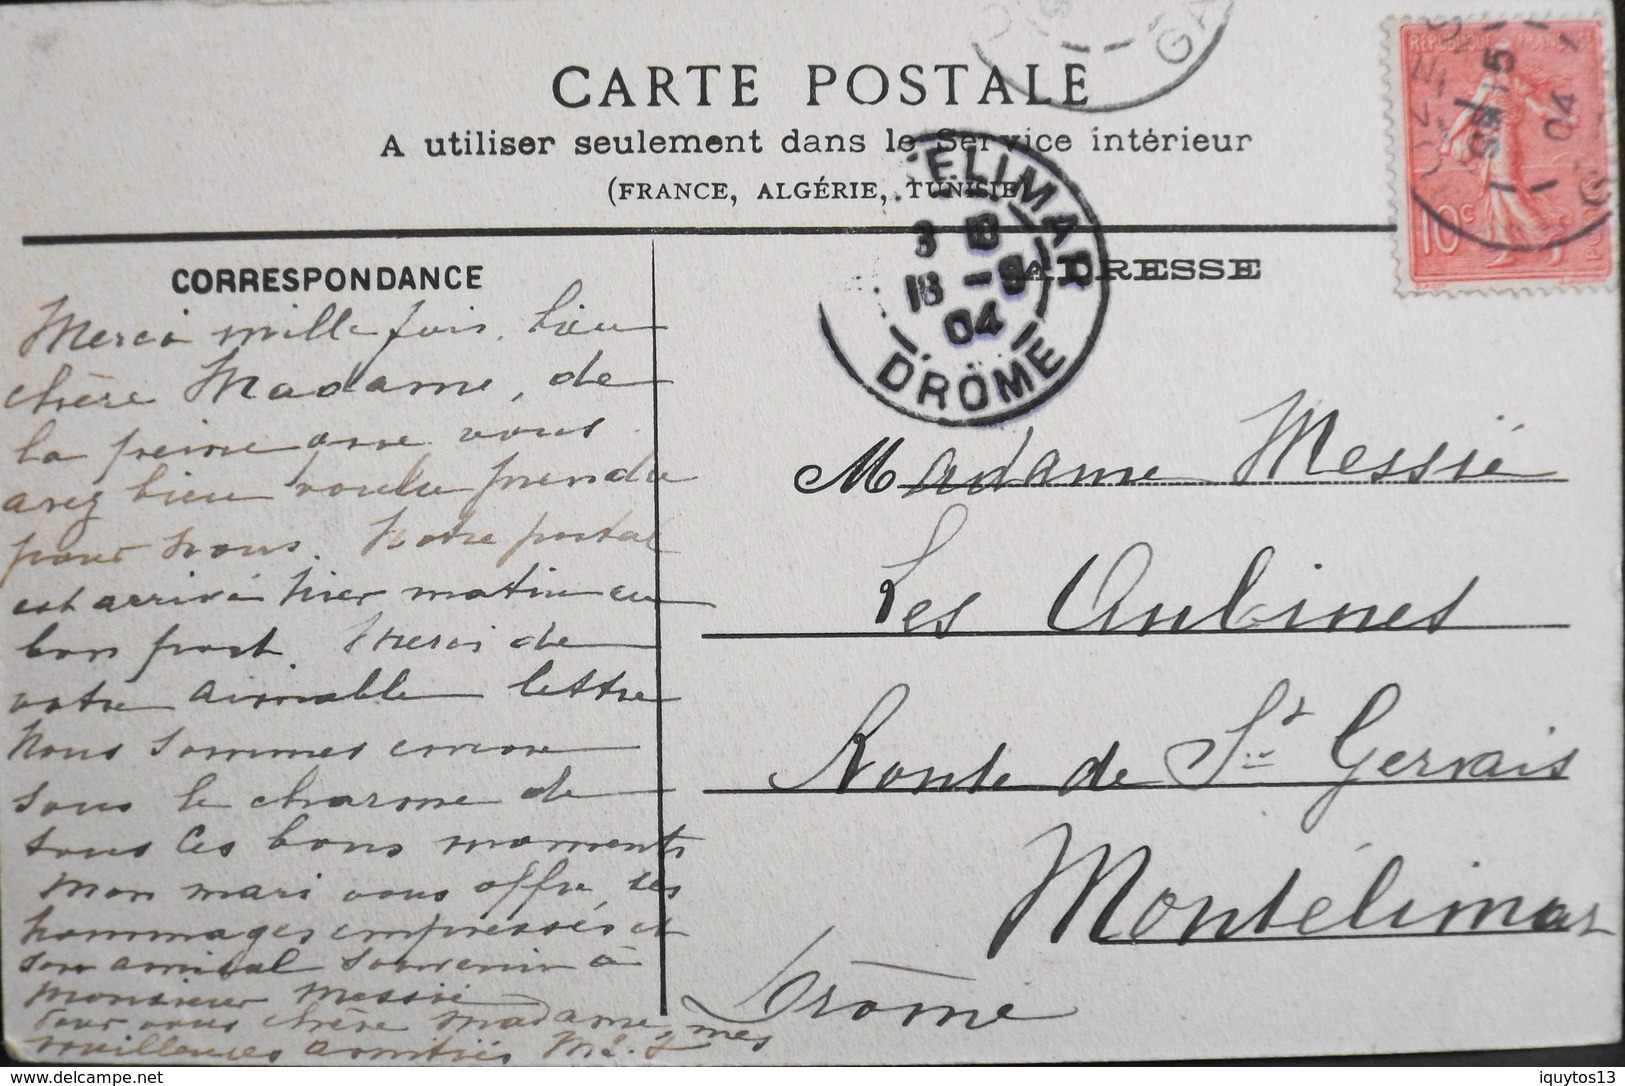 CARTE POSTALE
A utiliser seulement dans le Service intérieur
(FRANCE, ALGÉRIE, TUNISIE)
REPUBLIQUE FRANÇAISE
10c
15
04
GA
ELIMAR
3 E
18 -9
04
DRÔME
CORRESPONDANCE
ADRESSE
Merci mille fois, bien
chère Madame, de
la peine que vous
avez bien voulu prendre
pour nous. Notre postal
est arrivé hier matin en
bon port. Merci de
votre aimable lettre
Nous sommes encore
sous le charme de
tous ces bons moments
Mon mari vous offre, ses
hommages empressés et
son amical souvenir à
Monsieur Messié
Pour vous chère Madame, mes
meilleures amitiés
Madame Messié
Les Aubines
Route de St Gervais
Montélimar
Drôme
delcampe.net
iquytos13